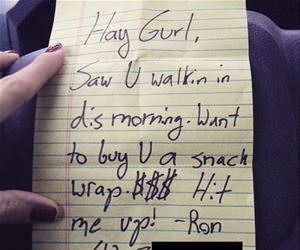 Hay Gurl,
Saw U walkin in
dis morning. Want
to buy U a snack
wrap. $$$ Hit
me up! -Ron